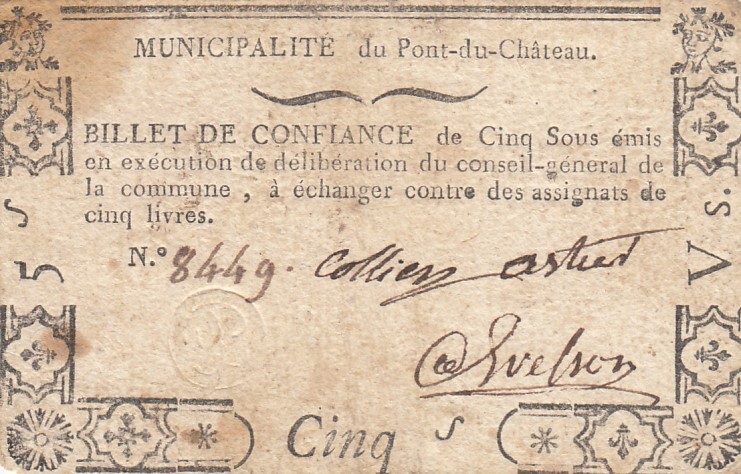 MUNICIPALITÉ du Pont-du-Château.
BILLET DE CONFIANCE de Cinq Sous émis
en exécution de délibération du conseil-général de
la commune , à échanger contre des assignats de
cinq livres.
N.º 8449. Colliers
5 s
V s.
Cinq s